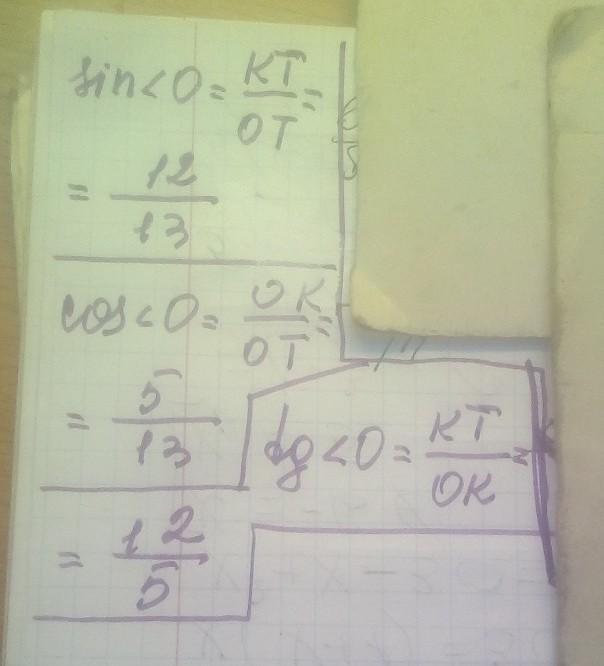 sin<O = KT/OT =
= 12/13
cos<O = OK/OT =
= 5/13
tg<O = KT/OK =
= 12/5